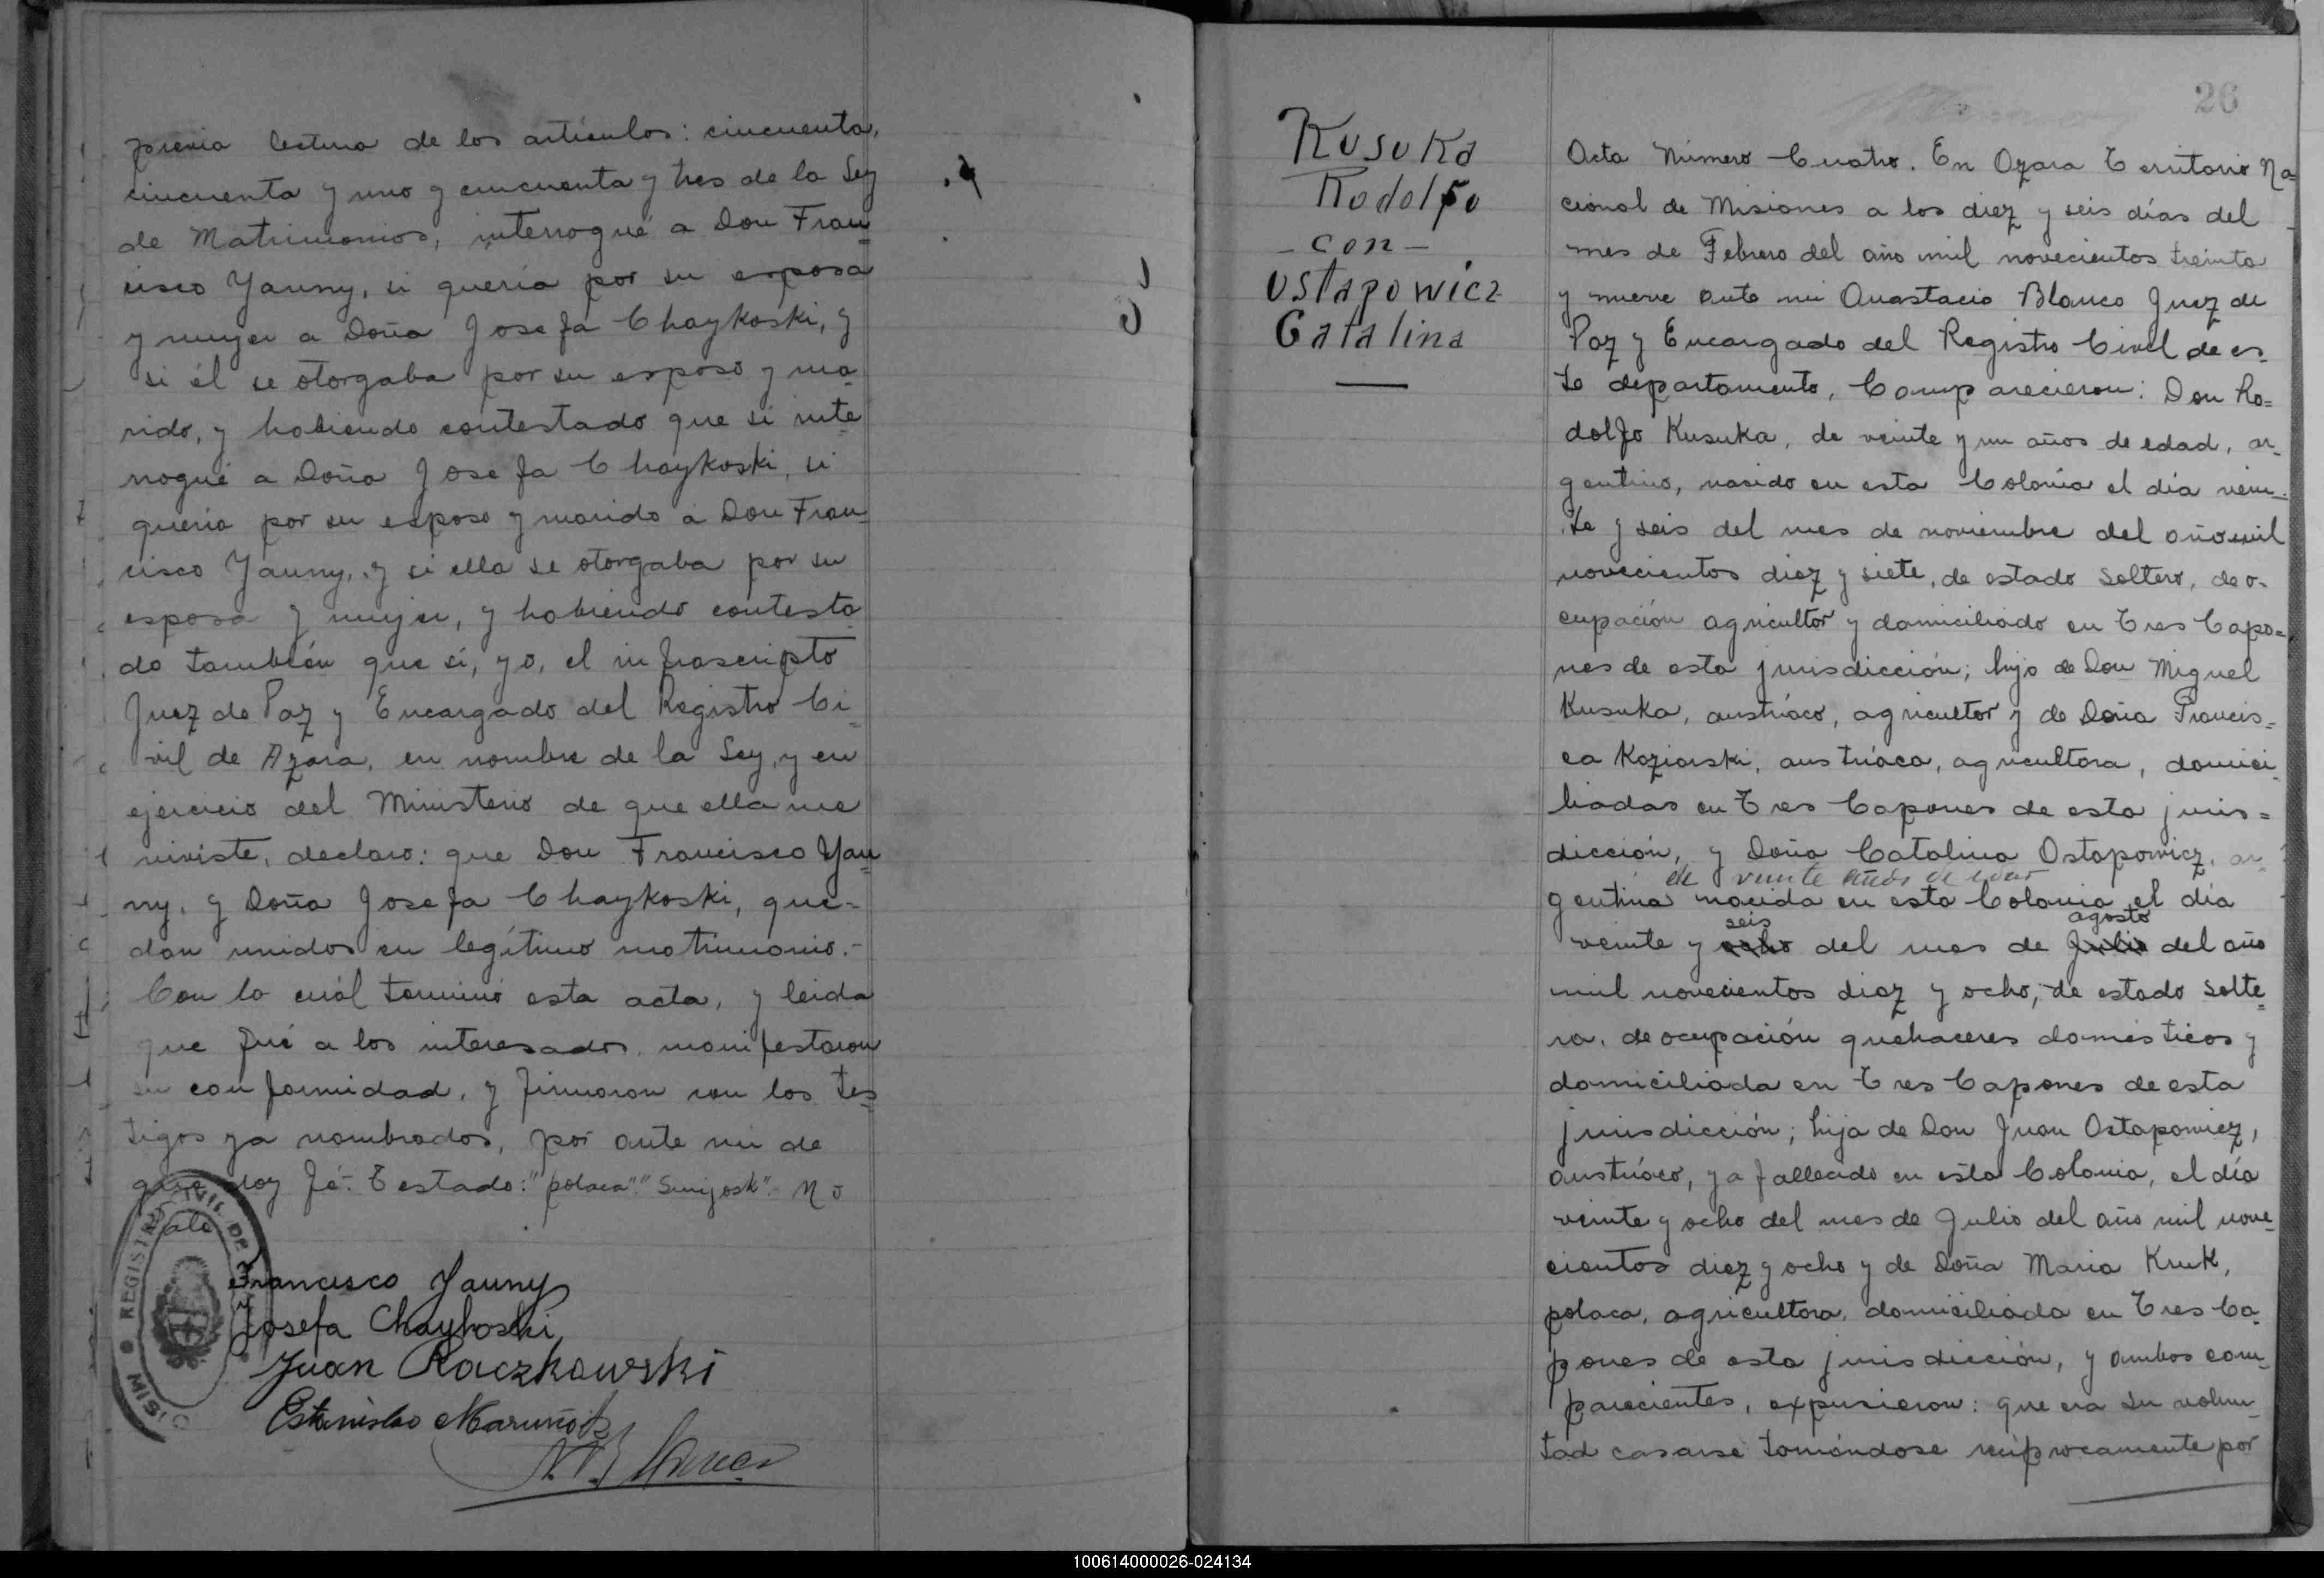 previa lectura de los artículos: cincuenta,
cincuenta y uno y cincuenta y tres de la Ley
de Matrimonios, interrogué a Don Fran=
cisco Yauny, si quería por su esposa
y mujer a Doña Josefa Chaykoski, y
si él se otorgaba por su esposo y ma-
rido, y habiendo contestado que sí inte-
rrogué a Doña Josefa Chaykoski, si
quería por su esposo y marido a Don Fran-
cisco Yauny, y si ella se otorgaba por su
esposa y mujer, y habiendo contesta-
do también que sí, yo, el infrascripto
Juez de Paz y Encargado del Registro Ci-
vil de Azara, en nombre de la Ley, y en
ejercicio del Ministerio de que ella me
inviste, declaro: que Don Francisco Yau-
ny, y Doña Josefa Chaykoski, que-
dan unidos en legítimo matrimonio.-
Con lo cuál terminó esta acta, y leida
que fué a los interesados, manifestaron
su conformidad, y firmaron con los tes-
tigos ya nombrados, por ante mi de
que doy fé.- Testado: "polaca" "Smijosk". No
vale
REGISTRO CIVIL DE
MISIO
Francisco Yauny
Josefa Chaykoski
Juan Raczkowski
Estanislao
26
Kusuka
Rodolfo
- con -
Ostapowicz
Catalina
Acta Número Cuatro. En Azara Territorio Na=
cional de Misiones a los diez y seis días del
mes de Febrero del año mil novecientos treinta
y nueve ante mi Anastacio Blanco Juez de
Paz y Encargado del Registro Civil de es-
te departamento, Comparecieron: Don Ro=
dolfo Kusuka, de veinte y un años de edad, ar-
gentino, nacido en esta Colonia el día vein-
te y seis del mes de noviembre del año mil
novecientos diez y siete, de estado soltero, de o-
cupación agricultor y domiciliado en Tres Capo=
nes de esta jurisdicción; hijo de Don Miguel
Kusuka, austríaco, agricultor y de Doña Francis=
ca Koziarski, austríaca, agricultora, domici-
liadas en Tres Capones de esta juris=
dicción, y Doña Catalina Ostapowicz, ar-
de veinte años de edad
gentina nacida en esta Colonia el día
seis agosto
veinte y ocho del mes de Julio del año
mil novecientos diez y ocho, de estado solte-
ra, de ocupación quehaceres domésticos y
domiciliada en Tres Capones de esta
jurisdicción; hija de Don Juan Ostapowicz,
austríaco, ya fallecido en esta Colonia, el día
veinte y ocho del mes de Julio del año mil nove-
cientos diez y ocho y de Doña Maria Kruk,
polaca, agricultora, domiciliada en Tres Ca-
pones de esta jurisdicción, y ambos com-
parecientes, expusieron: que era su volun-
tad casarse tomándose recíprocamente por
100614000026-024134